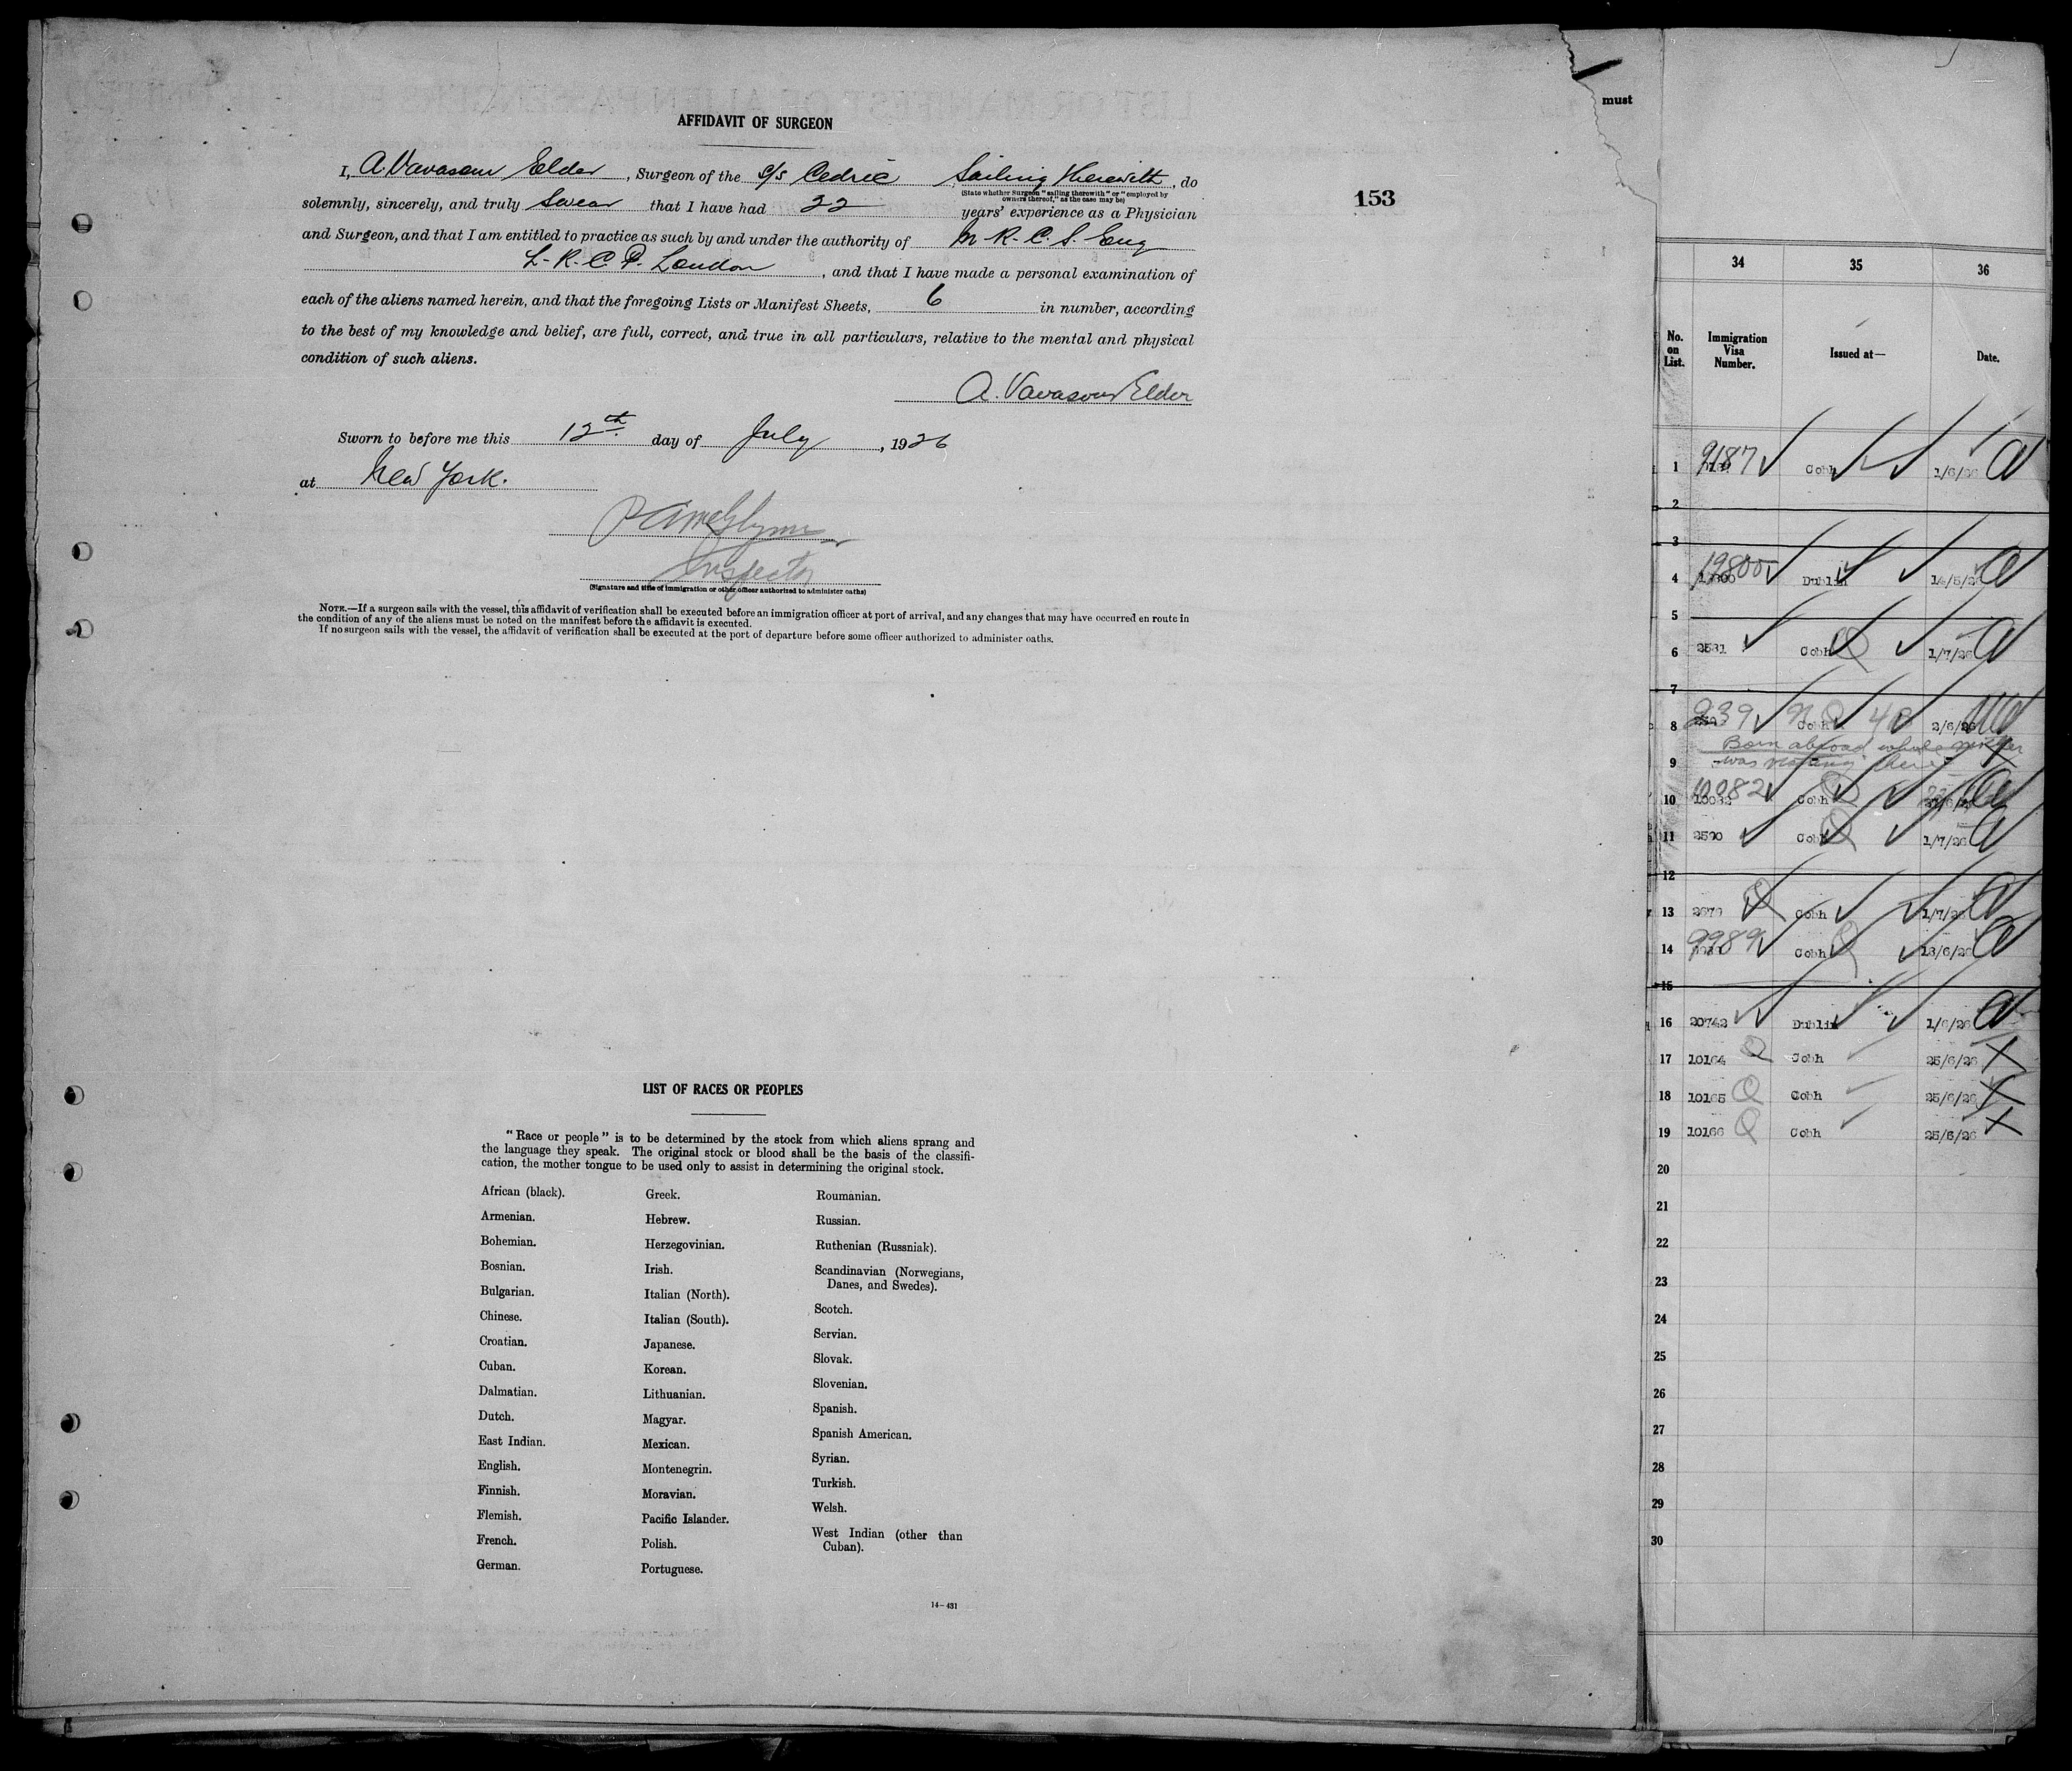 AFFIDAVIT OF SURGEON
I, A. Vavasour Elder, Surgeon of the s/s Cedric, Sailing therewith, do
(State whether Surgeon "sailing therewith" or "employed by
owners thereof," as the case may be)
solemnly, sincerely, and truly Swear that I have had 22 years' experience as a Physician
and Surgeon, and that I am entitled to practice as such by and under the authority of M.R.C.S. Eng
L.R.C.P. London, and that I have made a personal examination of
each of the aliens named herein, and that the foregoing Lists or Manifest Sheets, 6 in number, according
to the best of my knowledge and belief, are full, correct, and true in all particulars, relative to the mental and physical
condition of such aliens.
A. Vavasour Elder
Sworn to before me this 12th day of July, 1926
at New York.
Inspector
(Signature and title of immigration or other officer authorized to administer oaths)
NOTE.—If a surgeon sails with the vessel, this affidavit of verification shall be executed before an immigration officer at port of arrival, and any changes that may have occurred en route in
the condition of any of the aliens must be noted on the manifest before the affidavit is executed.
If no surgeon sails with the vessel, the affidavit of verification shall be executed at the port of departure before some officer authorized to administer oaths.
153
must
LIST OF RACES OR PEOPLES
"Race or people" is to be determined by the stock from which aliens sprang and
the language they speak. The original stock or blood shall be the basis of the classifi-
cation, the mother tongue to be used only to assist in determining the original stock.
African (black).
Armenian.
Bohemian.
Bosnian.
Bulgarian.
Chinese.
Croatian.
Cuban.
Dalmatian.
Dutch.
East Indian.
English.
Finnish.
Flemish.
French.
German.
Greek.
Hebrew.
Herzegovinian.
Irish.
Italian (North).
Italian (South).
Japanese.
Korean.
Lithuanian.
Magyar.
Mexican.
Montenegrin.
Moravian.
Pacific Islander.
Polish.
Portuguese.
Roumanian.
Russian.
Ruthenian (Russniak).
Scandinavian (Norwegians,
Danes, and Swedes).
Scotch.
Servian.
Slovak.
Slovenian.
Spanish.
Spanish American.
Syrian.
Turkish.
Welsh.
West Indian (other than
Cuban).
14-431
34 35 36
No. on List. Immigration Visa Number. Issued at— Date.
1 9187 Cobh 1/6/26
2
3
4 19800 Dublin 14/5/26
5
6 2581 Cobh Q 1/7/26
7
8 239 NQ Cobh 4B 2/6/26
Born abroad while mother
9 was visiting there
10 10082 Cobh Q
11 2590 Cobh Q 1/7/26
12
13 Q Cobh 1/7/26
14 9989 Cobh Q 18/6/26
15
16 20742 Dublin 1/6/26
17 10164 Q Cobh 25/6/26 X
18 10165 Q Cobh 25/6/26 X
19 10166 Q Cobh 25/6/26 X
20
21
22
23
24
25
26
27
28
29
30